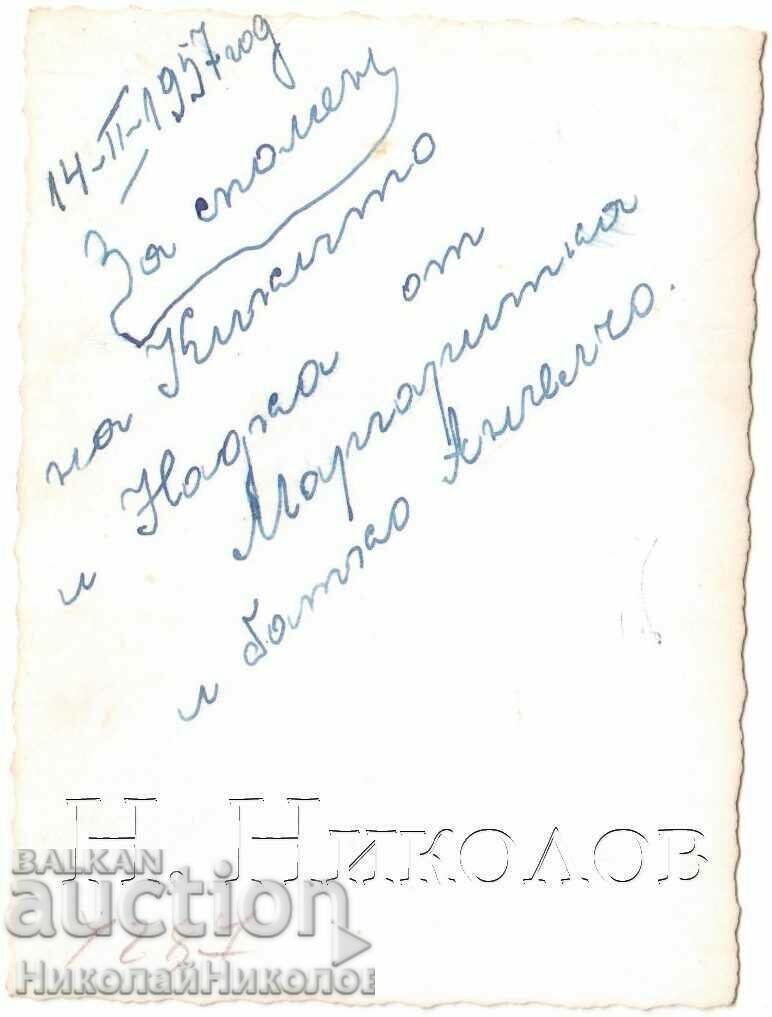 14-II-1957 год
За спомен
на
и Надка от
Маргаритка
и батко Ангелчо.
Н. Николов
BALKAN
auction
НиколайНиколов